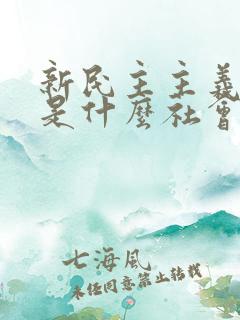 新民主主義
是什麼社會
七海風
未经同意禁止转载